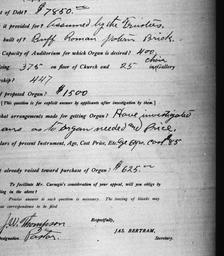 of Debt? $7850.00
it provided for? Assumed by the Trustees.
built of? Buff Roman pattern Brick.
Capacity of Auditorium for which Organ is desired? 400
375 on floor of Church and 25 in choir gallery
ship? 447
proposed Organ? $1500
[This question is for explicit answer by applicants after investigation by them.]
hat arrangements made for getting Organ? Have investigated
as to Organ needed and Price.
lars of present Instrument, Age, Cost Price, Etc. 
t already raised toward purchase of Organ? $625.00
To facilitate Mr. Carnegie's consideration of your appeal, will you oblige by
ing in the above?
Precise answer to each question is necessary. The issuing of blanks may
no correspondence to be filed
Respectfully,
J. W. Thompson
JAS. BERTRAM,
esignation Pastor.
Secretary.